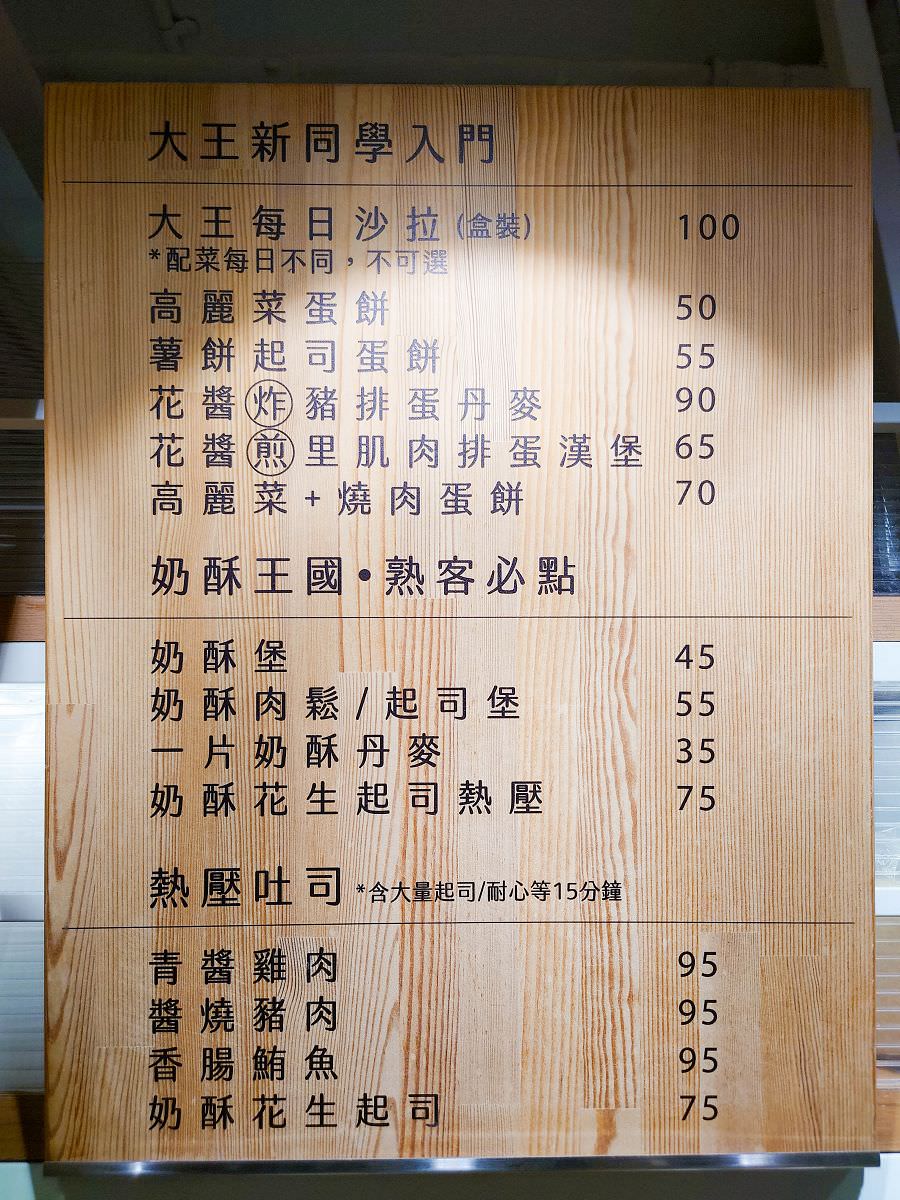 大王新同學入門
大王每日沙拉(盒裝) 100
*配菜每日不同，不可選
高麗菜蛋餅 50
薯餅起司蛋餅 55
花醬炸豬排蛋丹麥 90
花醬煎里肌肉排蛋漢堡 65
高麗菜+燒肉蛋餅 70
奶酥王國•熟客必點
奶酥堡 45
奶酥肉鬆/起司堡 55
一片奶酥丹麥 35
奶酥花生起司熱壓 75
熱壓吐司 *含大量起司/耐心等15分鐘
青醬雞肉 95
醬燒豬肉 95
香腸鮪魚 95
奶酥花生起司 75